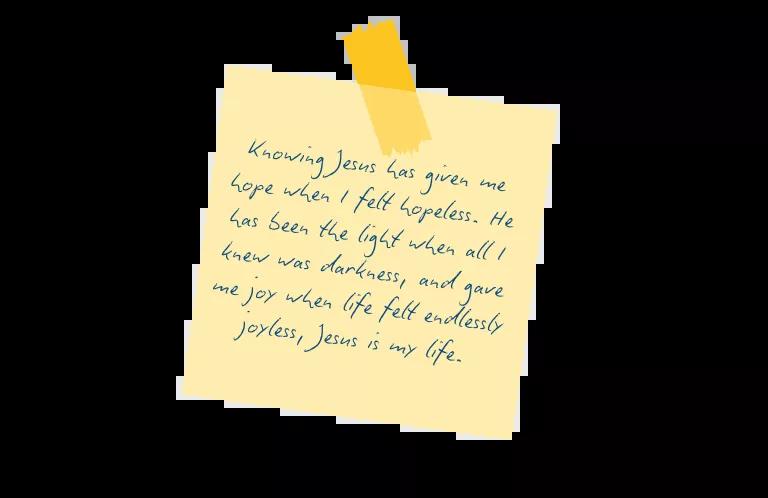 Knowing Jesus has given me
hope when I felt hopeless. He
has been the light when all I
knew was darkness, and gave
me joy when life felt endlessly
joyless, Jesus is my life.